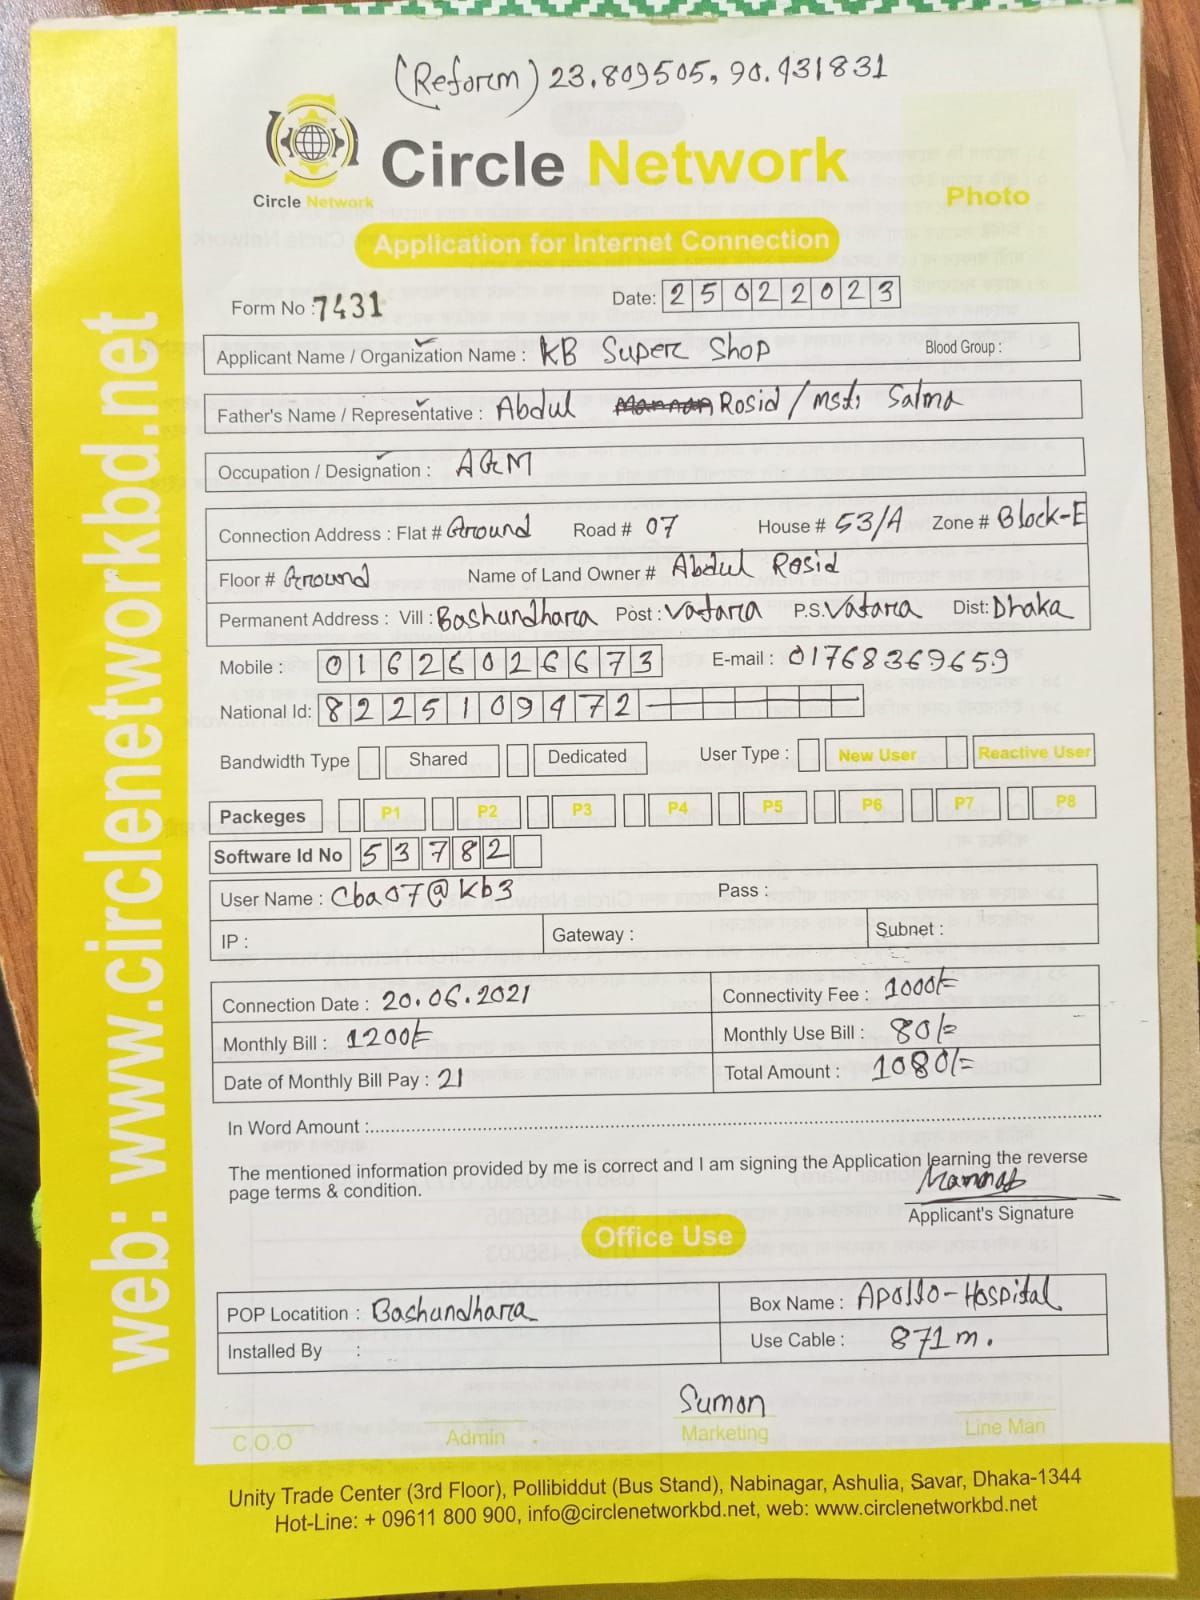 (Reform) 23.809505, 90.431831
Circle Network
Circle Network
Photo
Application for Internet Connection
Form No : 7431
Date: 25022023
Applicant Name / Organization Name : KB Super Shop Blood Group :
Father's Name / Representative : Abdul Rosid / Mst: Salma
Occupation / Designation : AGM
Connection Address : Flat # Ground Road # 07 House # 53/A Zone # Block-E
Floor # Ground Name of Land Owner # Abdul Rosid
Permanent Address : Vill : Bashundhara Post : Vatara P.S. Vatara Dist: Dhaka
Mobile : 01626026673 E-mail : 01768369659
National Id: 8225109472
Bandwidth Type Shared Dedicated User Type : New User Reactive User
Packeges P1 P2 P3 P4 P5 P6 P7 P8
Software Id No 53782
User Name : Cba07@kb3 Pass :
IP : Gateway : Subnet :
Connection Date : 20.06.2021 Connectivity Fee : 1000/=
Monthly Bill : 1200/= Monthly Use Bill : 80/=
Date of Monthly Bill Pay : 21 Total Amount : 1080/=
In Word Amount :
The mentioned information provided by me is correct and I am signing the Application learning the reverse
page terms & condition.
Applicant's Signature
Office Use
POP Locatition : Bashundhara Box Name : Apollo-Hospital
Installed By : Use Cable : 871 m.
Suman
C.O.O Admin Marketing Line Man
Unity Trade Center (3rd Floor), Pollibiddut (Bus Stand), Nabinagar, Ashulia, Savar, Dhaka-1344
Hot-Line: + 09611 800 900, info@circlenetworkbd.net, web: www.circlenetworkbd.net
web: www.circlenetworkbd.net